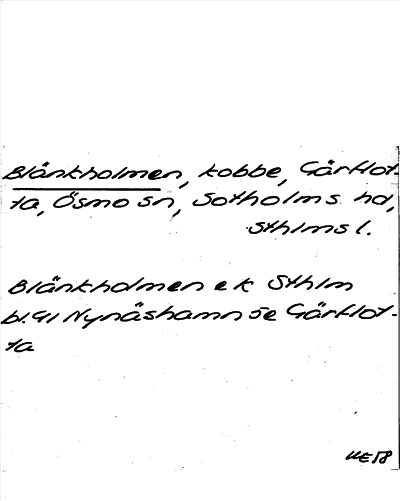 Blänkholmen, kobbe, Gärflot-
ta, Ösmo sn, Sotholms hd,
Sthlms l.
Blänkholmen e k Sthlm
bl. 91 Nynäshamn se Gärflot-
ta